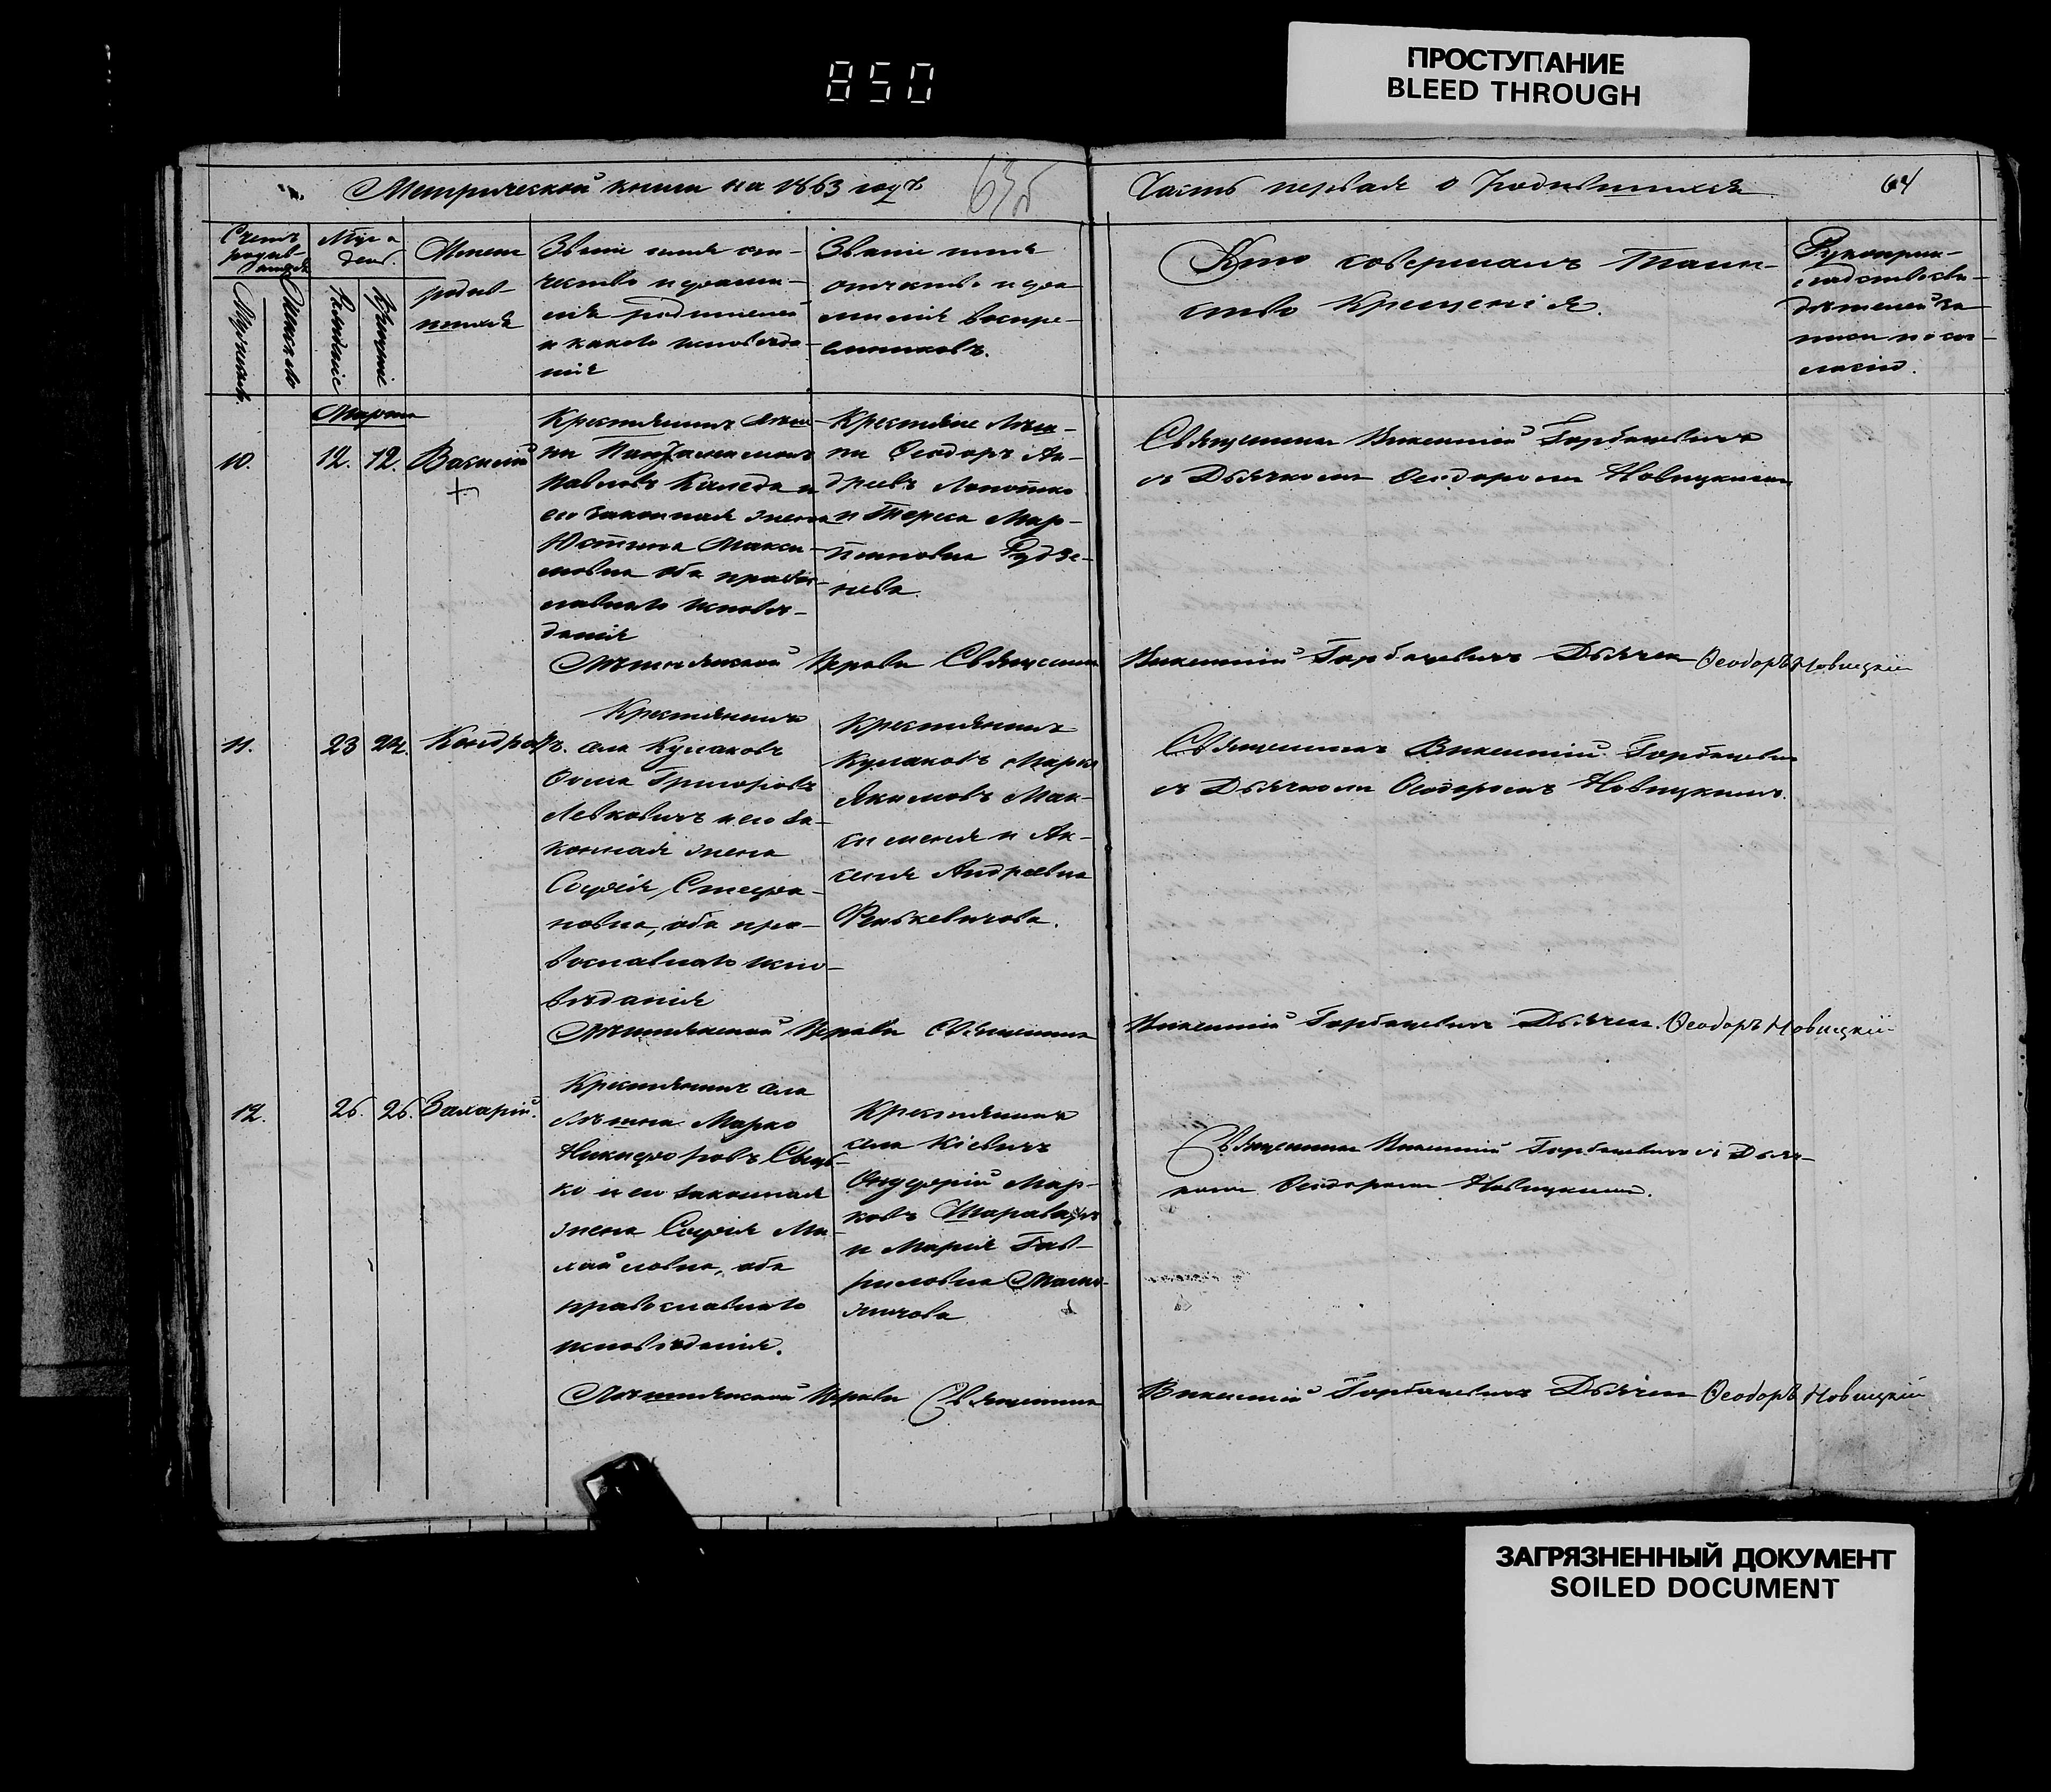 850
ПРОСТУПАНИЕ
BLEED THROUGH
Метрической книги на 1863 годъ
63об
Часть первая о Родившихся
64
Счетъ
родив-
шихся
Мужескаго
Женскаго
Мѣс. и
день.
Рожденіе
Крещеніе
Имена
родив-
шихся
Званіе имя оте-
чество и фами-
лія родителей
и какого исповѣда-
нія
Званіе имя
отчество и фа
милія воспре-
емниковъ.
Кто совершалъ Таин-
ство Крещенія.
Рукоприк-
ладство сви-
дѣтелей за
писи по со-
ласію.
Марта
10.
12.
12.
Василій
Крестьянинъ
Павловъ Каледа и
его законная жена
Юстина Макси-
мовна оба право-
славнаго исповѣ-
данія
Крестьяне
на Феодоръ Ан-
дреевъ Лопотко
и Тереса Мар-
Священникъ Викентій Горбачевичъ
съ Дьячкомъ Феодоромъ Новицкимъ
Церкви Священникъ Викентій Горбачевичъ Дьячекъ Ѳеодоръ Новицкій
11.
23
24.
Кондратъ.
Крестьянинъ
села Кулаковъ
Ѳома Григоровъ
Левковичъ и его за-
конная жена
Софія Стефа-
новна, оба пра-
вославнаго испо-
вѣданія
Крестьянинъ
Кулаковъ Марко
Якимовъ Мак-
сименя и Ак-
сенія Андреевна
Священникъ Викентій Горбачевичъ
съ Дьячкомъ Феодоромъ Новицкимъ.
Церкви Священникъ Викентій Горбачевичъ Дьячекъ. Ѳеодоръ Новицкій
12.
26.
26.
Захарій.
Крестьянинъ села
Марко
Никифоровъ
ко и его законная
жена Софія Ми-
хайловна, оба
православнаго
исповѣданія.
Крестьянинъ
села Кіевичъ
Мар-
ковъ
и Марія Гав-
риловна
Священникъ Викентій Горбачевичъ съ Дьяч-
комъ Феодоромъ Новицкимъ.
Церкви Священникъ Викентій Горбачевичъ Дьячекъ Ѳеодоръ Новицкій
ЗАГРЯЗНЕННЫЙ ДОКУМЕНТ
SOILED DOCUMENT